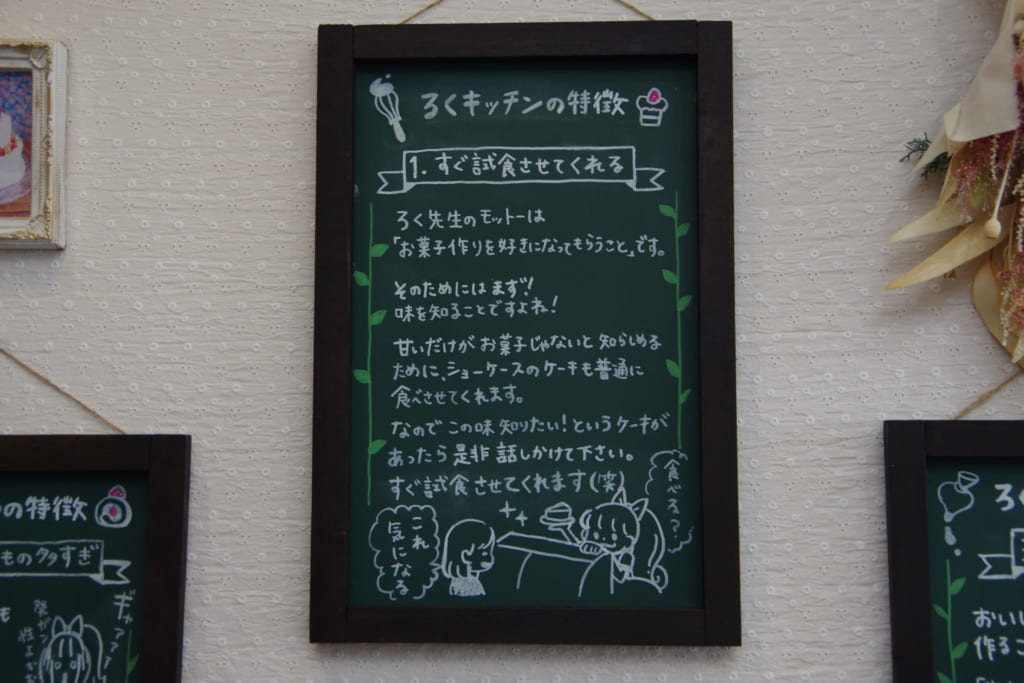 ろくキッチンの特徴
1. すぐ試食させてくれる
ろく先生のモットーは
「お菓子作りを好きになってもらうこと」です。
そのためにはまず!
味を知ることですよね!
甘いだけがお菓子じゃないと知らしめる
ために、ショーケースのケーキも普通に
食べさせてくれます。
なのでこの味知りたい!というケーキが
あったら是非話しかけて下さい。
すぐ試食させてくれます(笑)
食べる?
これ
気になる
の特徴
もの多すぎ
ギャァァァ
も
ろ
おいし
作るこ